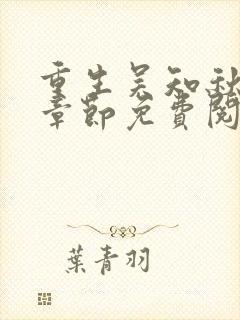 重生吴知秋
章節免費閱
葉青羽